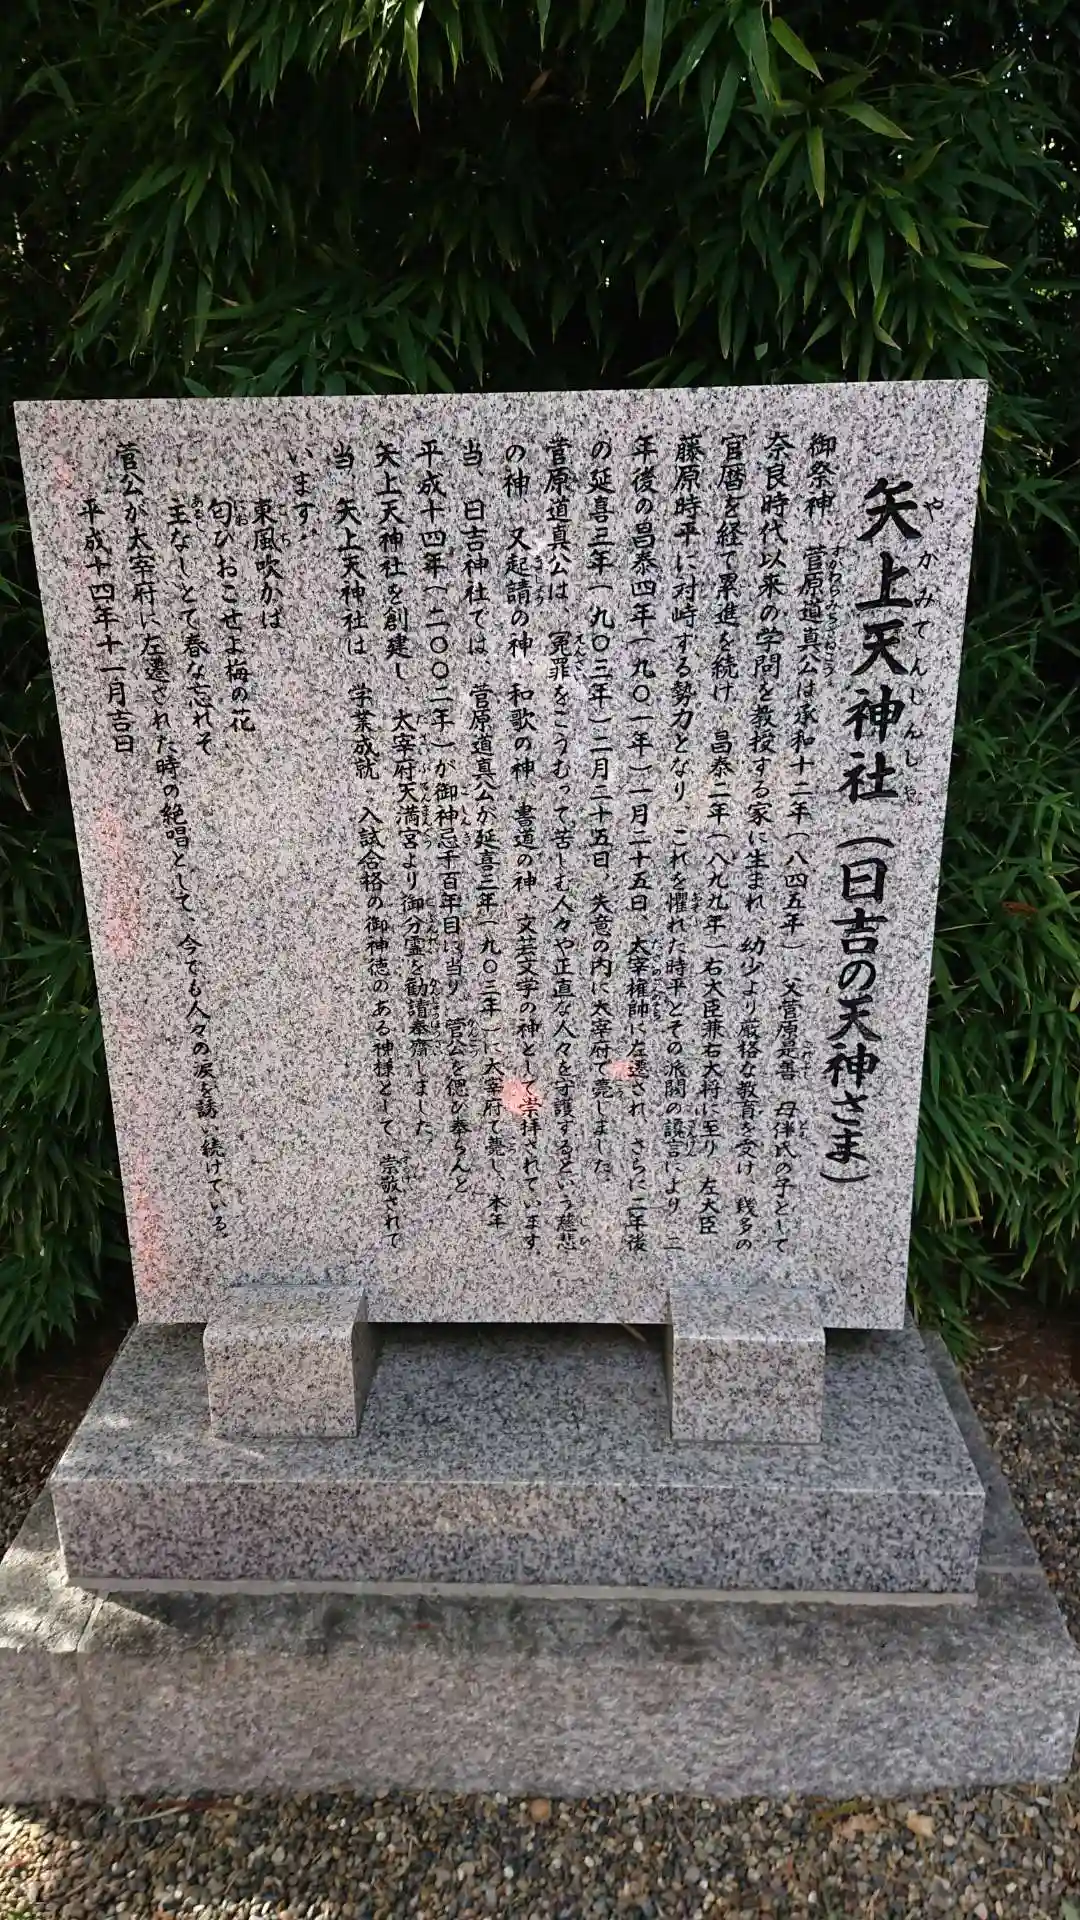 矢上天神社（日吉の天神さま）
御祭神　菅原道真公は承和十二年（八四五年）　父菅原是善　母伴氏の子として
奈良時代以来の学問を教授する家に生まれ　幼少より厳格な教育を受け、幾多の
官暦を経て累進を続け　昌泰二年（八九九年）右大臣兼右大将に至り、左大臣
藤原時平に対峙する勢力となり、これを懼れた時平とその派閥の讒言により　二
年後の昌泰四年（九〇一年）一月二十五日、太宰権帥に左遷され　さらに二年後
の延喜三年（九〇三年）二月二十五日、失意の内に太宰府で薨しました。
菅原道真公は　冤罪をこうむって苦しむ人々や正直な人々を守護するという慈悲
の神　又起請の神　和歌の神　書道の神　文芸文学の神として崇拝されています。
当、日吉神社では、菅原道真公が延喜三年（九〇三年）に太宰府で薨し、本年
平成十四年（二〇〇二年）が御神忌千百年目に当り　菅公を偲び奉らんと
矢上天神社を創建し　太宰府天満宮より御分霊を勧請奉齋しました
当、矢上天神社は　学業成就、入試合格の御神徳のある神様として　崇敬されて
います。
東風吹かば
匂ひおこせよ梅の花
主なしとて春な忘れそ
菅公が大宰府に左遷された時の絶唱として　今でも人々の涙を誘い続けている
平成十四年十一月吉日